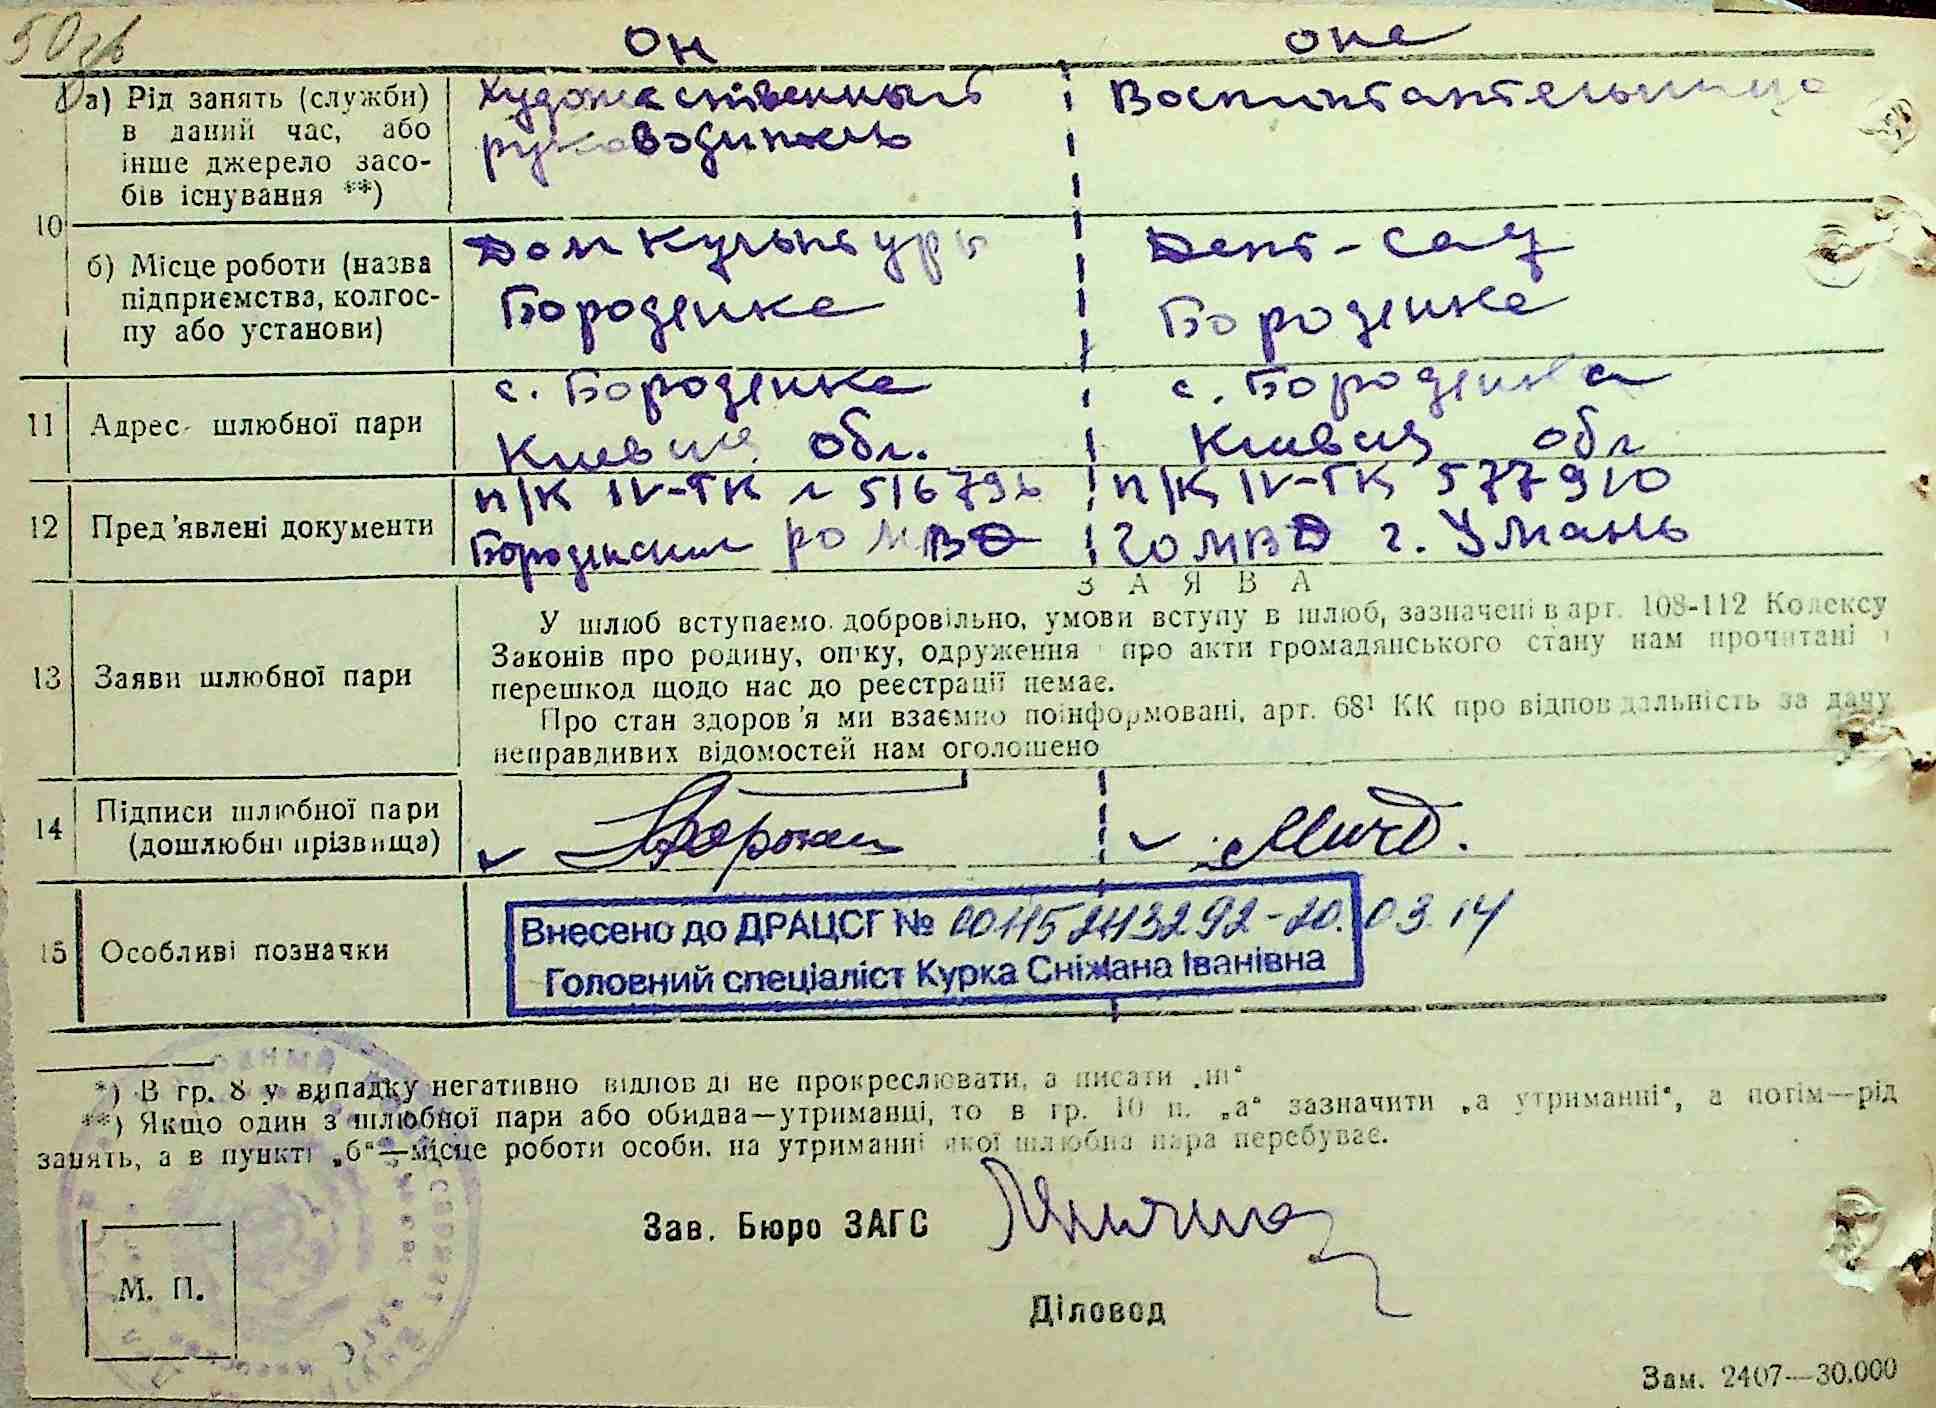 50гв
он она
а) Рід занять (служби) в даний час, або інше джерело засо-бів існування **)
Художественный Воспитательница
руководитель
10
б) Місце роботи (назва
підприємства, колгос-
пу або установи)
Дом культуры Дет-сад
Бородянка Бородянка
11 Адрес шлюбної пари
с. Бородянка с. Бородянка
Киевск обл. Киевск обл
12 Пред'явлені документи
п/к IV-ТК № 516796 п/к IV-ТК 577910
Бородянским РОМВД ГОМВД г. Умань
ЗАЯВА
13 Заяви шлюбної пари
У шлюб вступаємо добровільно, умови вступу в шлюб, зазначені в арт. 108-112 Кодексу
Законів про родину, опіку, одруження і про акти громадянського стану нам прочитані і
перешкод щодо нас до реєстрації немає.
Про стан здоров'я ми взаємно поінформовані, арт. 68¹ КК про відповідальність за дачу
неправдивих відомостей нам оголошено
14 Підписи шлюбної пари
(дошлюбні прізвища)
15 Особливі позначки
Внесено до ДРАЦСГ № 00115243292-20.03.14
Головний спеціаліст Курка Сніжана Іванівна
*) В гр. 8 у випадку негативно відповіді не прокреслювати, а писати „ні“
**) Якщо один з шлюбної пари або обидва—утриманці, то в гр. 10 п. „а“ зазначити „а утриманні“, а потім—рід
занять, а в пункті „б“—місце роботи особи, на утриманні якої шлюбна пара перебуває.
Зав. Бюро ЗАГС
М. П.
Діловод
Зам. 2407—30.000